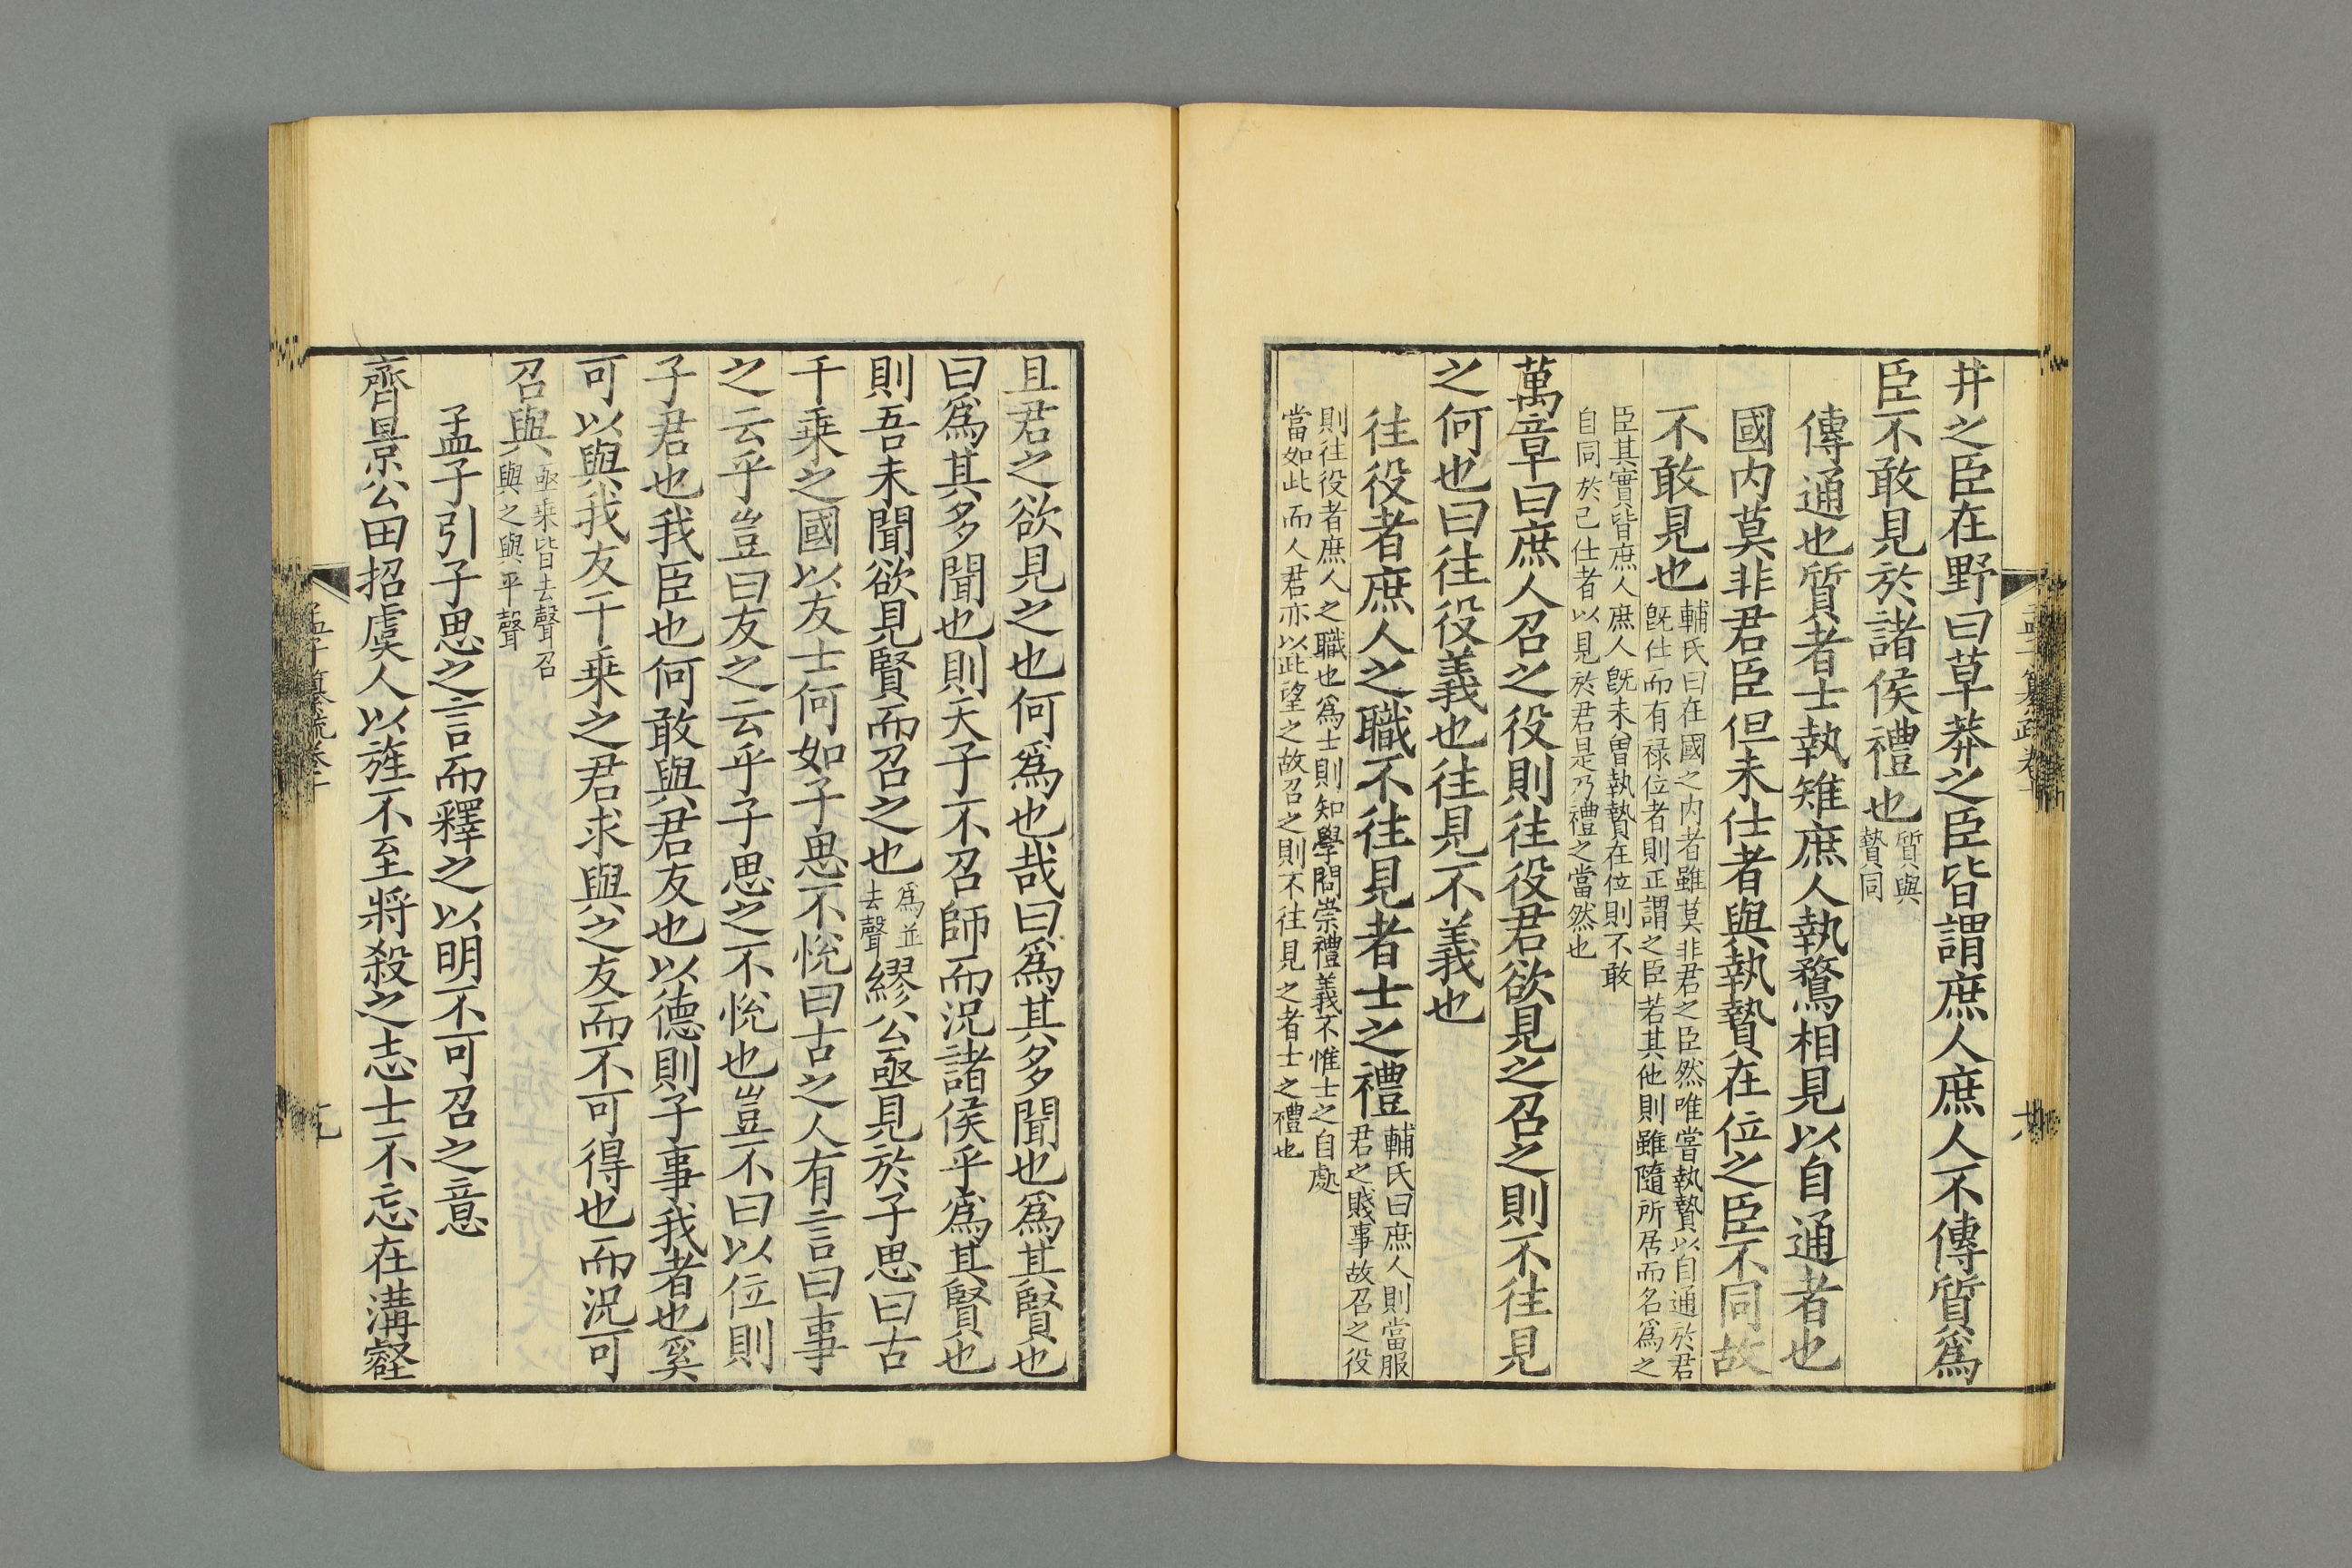 井之臣在野曰草莽之臣皆謂庶人庶人不傳質爲
臣不敢見於諸侯禮也
質與
贄同
傳通也質者士執雉庶人執鶩相見以自通者也
國内莫非君臣但未仕者與執贄在位之臣不同故
不敢見也
輔氏曰在國之内者雖莫非君之臣然唯當執贄以自通於君
旣仕而有禄位者則正謂之臣若其他則雖隨所居而名爲之
臣其實皆庶人庶人旣未曽執贄在位則不敢
自同於己仕者以見於君是乃禮之當然也
萬章曰庶人召之役則往役君欲見之召之則不往見
之何也曰往役義也往見不義也
往役者庶人之職不往見者士之禮
輔氏曰庶人則當服
君之賤事故召之役
則往役者庶人之職也爲士則知學問崇禮義不惟士之自處
當如此而人君亦以此望之故召之則不往見之者士之禮也
且君之欲見之也何爲也哉曰爲其多聞也爲其賢也
曰爲其多聞也則天子不召師而況諸侯乎爲其賢也
則吾未聞欲見賢而召之也
爲並
去聲
繆公亟見於子思曰古
千乗之國以友士何如子思不悅曰古之人有言曰事
之云乎豈曰友之云乎子思之不悅也豈不曰以位則
子君也我臣也何敢與君友也以德則子事我者也奚
可以與我友千乗之君求與之友而不可得也而況可
召與
亟乗皆去聲召
與之與平聲
孟子引子思之言而釋之以明不可召之意
齊景公田招虞人以旌不至將殺之志士不忘在溝壑